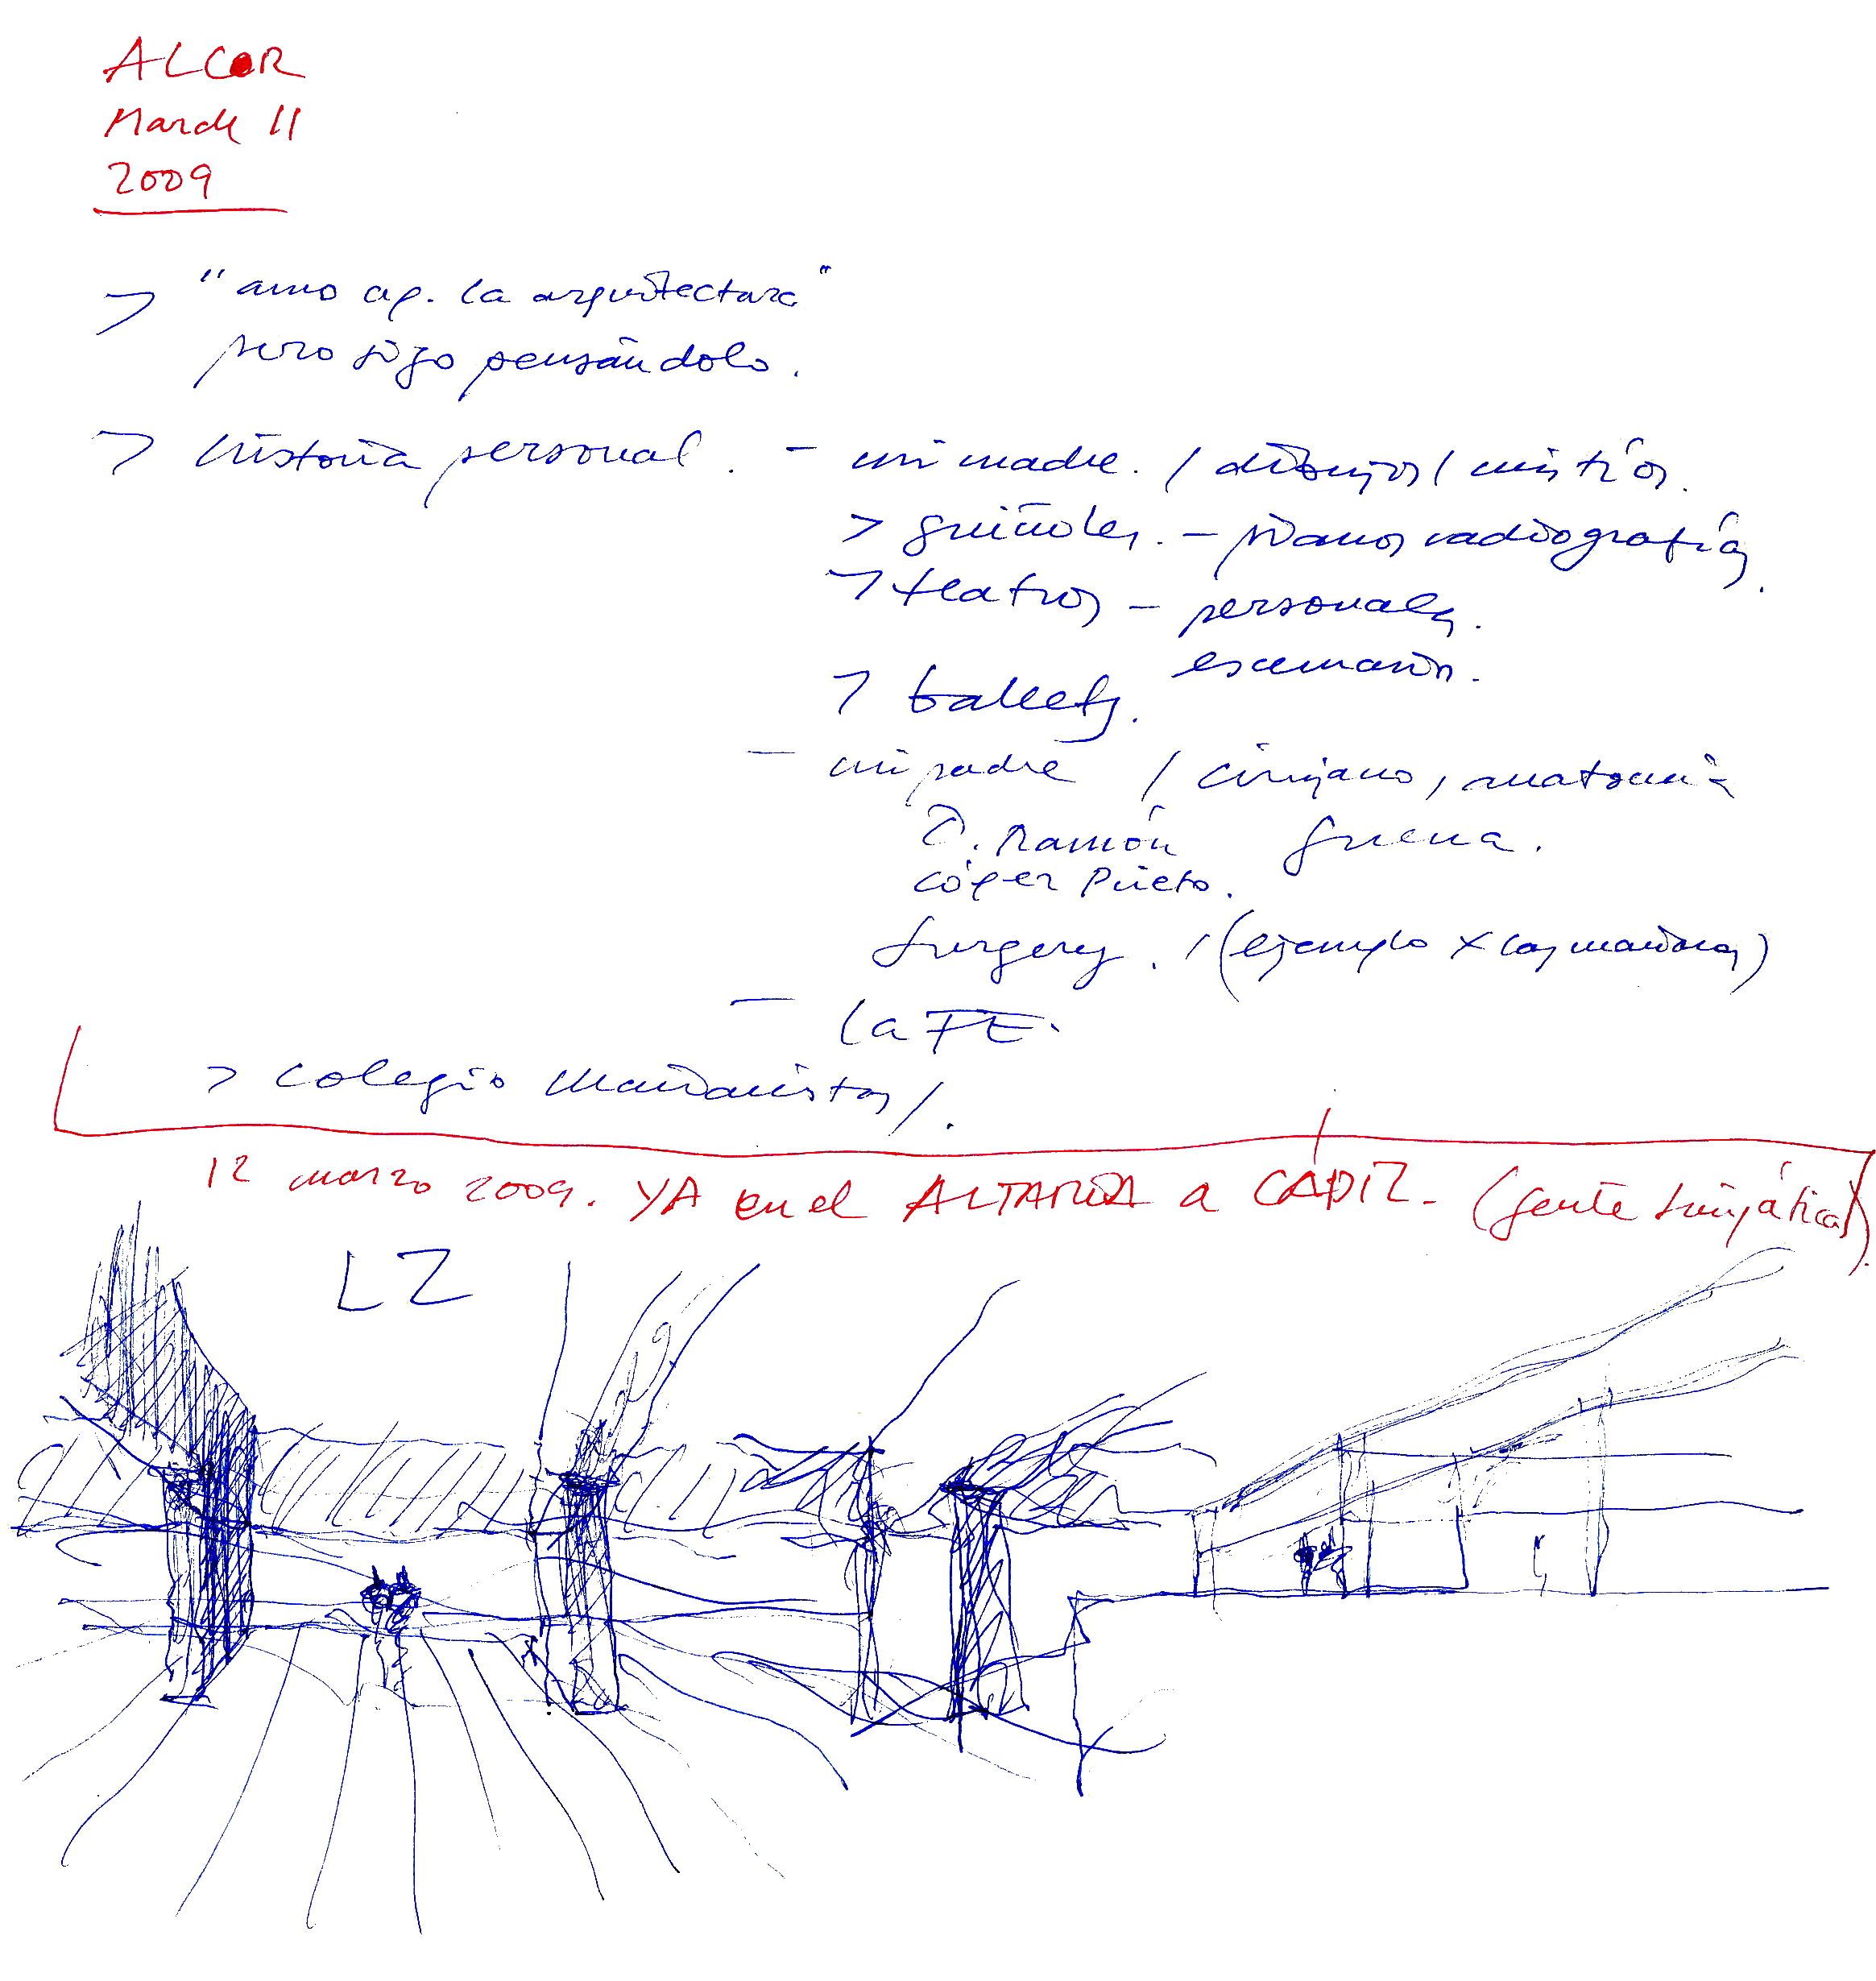 ALCOR
March 11
2009
> "amo a la arquitectura"
pero sigo pensándolo.
> historia personal. - mi madre. / dibujos / mis tíos.
> guiñoles. - pianos radiografías.
> teatros - personales.
escenarios.
> ballets.
- mi padre / cirujano, anatomía
D. Ramón guerra.
López Prieto.
Surgery. / (ejemplo x las mañanas)
- la FE.
> colegio Marianistas /.
12 marzo 2009. YA en el ALTARIA a CÁDIZ. (gente simpática).
LZ